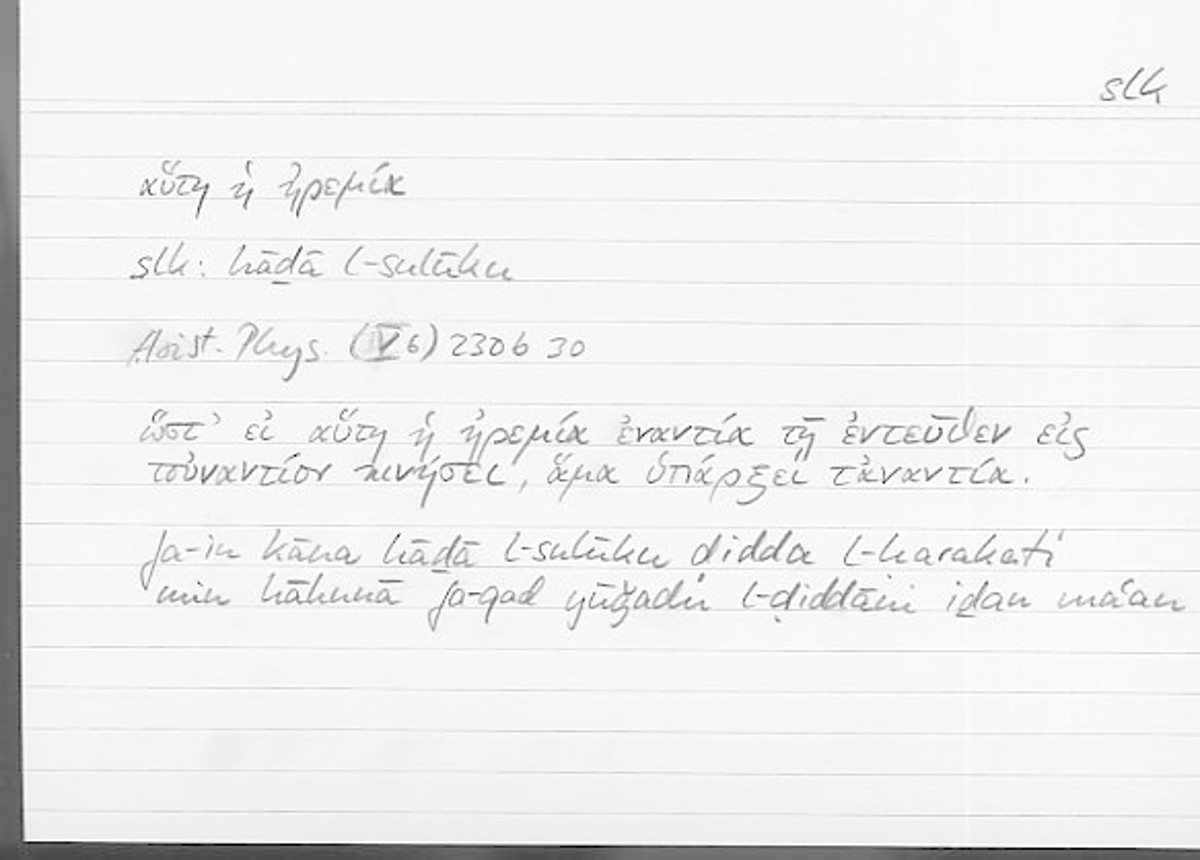 slk
αὕτη ἡ ἠρεμία
slk: hāḏā l-sulūku
Arist. Phys. (V 6) 230b 30
ὥστ' εἰ αὕτη ἡ ἠρεμία ἐναντία τῇ ἐντεῦθεν εἰς
τοὐναντίον κινήσει, ἅμα ὑπάρξει τἀναντία.
fa-in kāna hāḏā l-sulūku didda l-harakati
min hāhunā fa-qad yūǧadu l-ḍiddāni iḏan ma'an